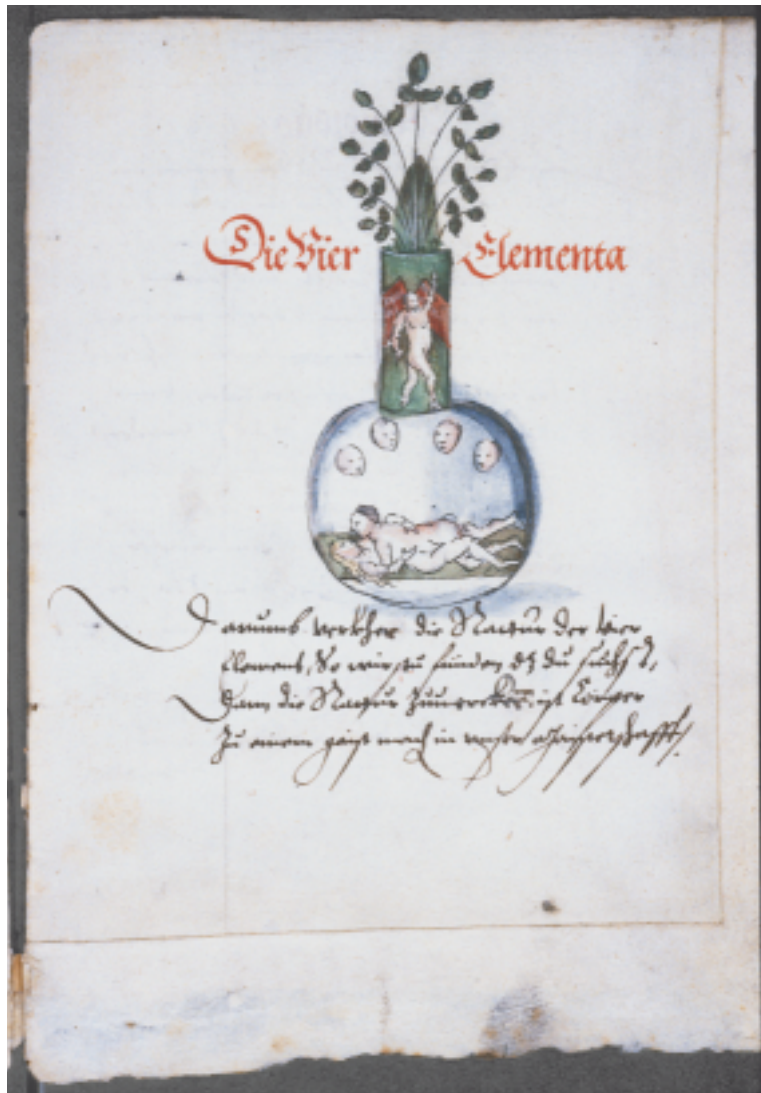 Die Vier Elementa
Darumb verkher die Natur der vier
Element, So wirstu finden dz du suchst,
Dann die Natur ist Cörper
Zu einem geist mach in unser Maisterschafft.